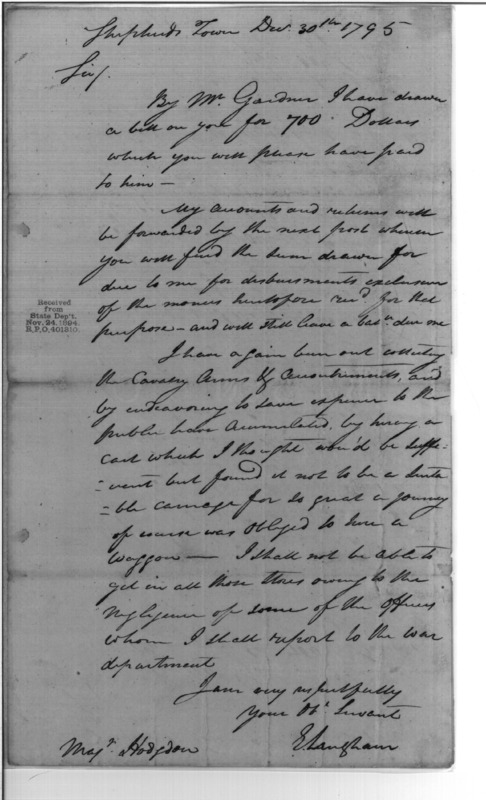 Shepherds Town Decr. 30th. 1795
Sir/
By Mr. Gardner I have drawn
a bill on you for 700 Dollars
which you will please have paid
to him —
My accounts and returns will
be forwarded by the next post wherein
you will find the sum drawn for
due to me for disbursments exclusive
of the monies heretofore recd. for that
purpose — and will still leave a bale. due me
I have again been out collecting
the Cavalry Arms & Accoutriments, and
by endeavoring to save expence to the
public have accumulated, by hiring a
cart which I thought wou'd be suffi=
=cient but found it not to be a suita
=ble carriage for so great a journey
of course was obliged to hire a
waggon — I shall not be able to
get in all those stores owing to the
negligence of some of the officers
whom I shall report to the war
department
I am very respectfully
Your Obt. Servant
E Langham
Majr. Hodgdon
Received
from
State Dep't.
Nov. 24, 1894.
R.P.O, 401310.